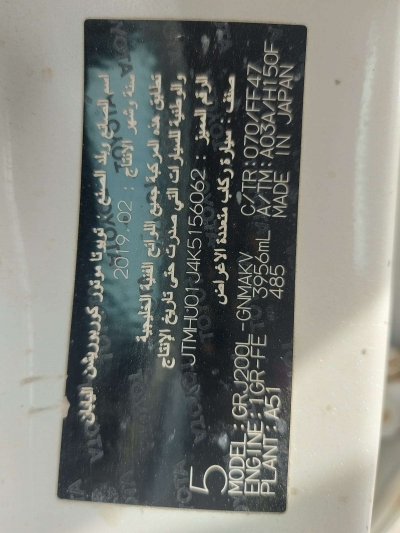 اسم الصانع وبلد الصنع : تويوتا موتور كوربوريشن اليابان
سنة وشهر الإنتاج : 2019.02
تطابق هذه المركبة جميع اللوائح الفنية الخليجية
والوطنية للسيارات التي صدرت حتى تاريخ الإنتاج
الرقم المميز : JTMHU01J4K5156062
صنف : سيارة ركاب متعددة الاغراض
5
MODEL:GRJ200L-GNMAKV C/TR:070/FF47
ENGINE:1GR-FE 3956mL A/TM:A03A/H150F
PLANT:A51 485 MADE IN JAPAN